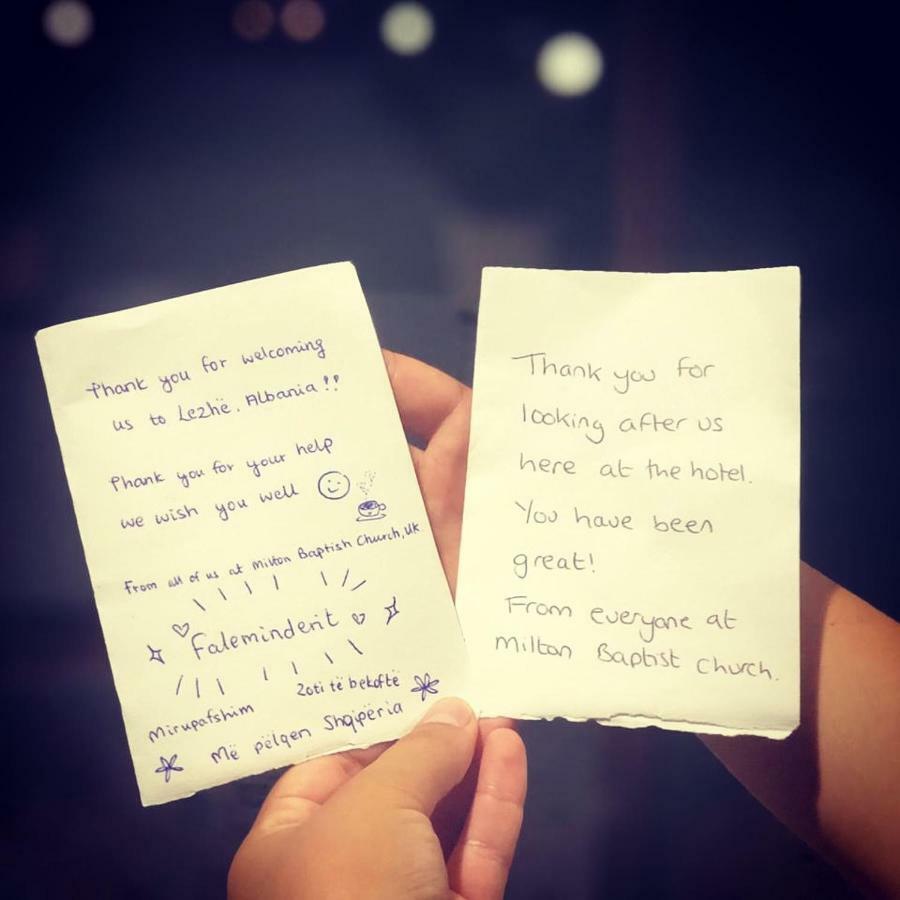 Thank you for welcoming
us to Lezhë, Albania!!
Thank you for your help
we wish you well
From all of us at Milton Baptist Church, UK
Faleminderit
Mirupafshim
Zoti të bekoftë
Më pëlqen Shqipëria
Thank you for
looking after us
here at the hotel.
You have been
great!
From everyone at
Milton Baptist Church.